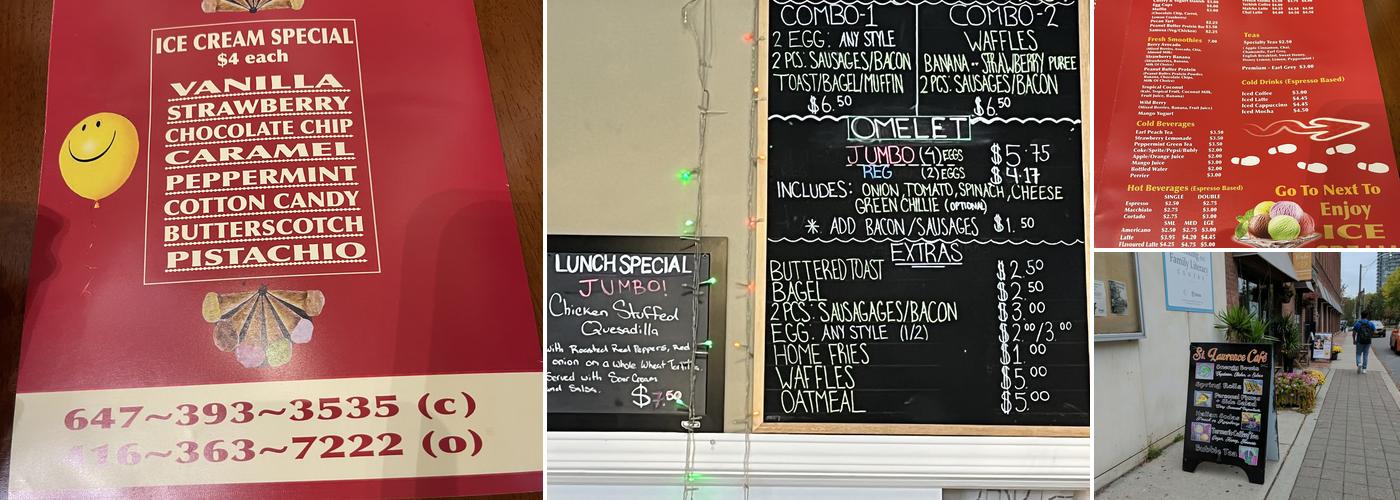 ICE CREAM SPECIAL
$4 each
VANILLA
STRAWBERRY
CHOCOLATE CHIP
CARAMEL
PEPPERMINT
COTTON CANDY
BUTTERSCOTCH
PISTACHIO
647~393~3535 (c)
416~363~7222 (o)
COMBO-1
2 EGG: ANY STYLE
2 PCS: SAUSAGES/BACON
TOAST/BAGEL/MUFFIN
$6.50
COMBO-2
WAFFLES
BANANA - STRAWBERRY PUREE
2 PCS: SAUSAGES/BACON
$6.50
OMELET
JUMBO (4) EGGS $5.75
REG (2) EGGS $4.17
INCLUDES: ONION, TOMATO, SPINACH, CHEESE
GREEN CHILLIE (OPTIONAL)
* ADD BACON/SAUSAGES $1.50
EXTRAS
BUTTERED TOAST $2.50
BAGEL $2.50
2 PCS: SAUSAGAGES/BACON $3.00
EGG: ANY STYLE (1/2) $2.00/3.00
HOME FRIES $1.00
WAFFLES $5.00
OATMEAL $5.00
LUNCH SPECIAL
JUMBO!
Chicken Stuffed
Quesadilla
with Roasted Red Peppers, Red
onion on a whole Wheat Tortilla.
Served with Sour Cream
and Salsa.
$7.50
Muffin
(Chocolate Chip, Carrot,
Lemon Cranberry)
Pecan Tart $2.25
Peanut Butter Protein Bar $3.50
Samosa (Veg/Chicken) $2.25
Fresh Smoothies 7.00
Berry Avocado
(Mixed Berries, Avocado, Chia,
Almond Milk)
Strawberry Banana
(Strawberries, Banana,
Milk Of Choice)
Peanut Butter Protein
(Peanut Butter, Protein Powder,
Banana, Chocolate Chips,
Milk Of Choice)
Tropical Coconut
(Kale, Tropical Fruit, Coconut Milk,
Fruit Juice, Banana)
Wild Berry
(Mixed Berries, Banana, Fruit Juice)
Mango Yogurt
Cold Beverages
Earl Peach Tea $3.50
Strawberry Lemonade $3.50
Peppermint Green Tea $3.50
Coke/Sprite/Pepsi/Bubly $2.00
Apple/Orange Juice $2.00
Mango Juice $3.00
Bottled Water $2.00
Perrier $3.00
Hot Beverages (Espresso Based)
SINGLE DOUBLE
Espresso $2.50 $2.75
Macchiato $2.75 $3.00
Cortado $2.75 $3.00
SML MED LGE
Americano $2.50 $2.75 $3.00
Latte $3.95 $4.20 $4.45
Flavoured Latte $4.25 $4.75 $5.00
Teas
Specialty Teas $2.50
Premium - Earl Grey $3.00
Cold Drinks (Espresso Based)
Iced Coffee $3.00
Iced Latte $4.45
Iced Cappuccino $4.45
Iced Mocha $4.50
Go To Next To
Enjoy
ICE
Family Literacy
St. Lawrence Café
Spring Rolls
Personal Pizza
+ Side Salad
Italian Sodas
Turmeric Coffee/Tea
Bubble Tea